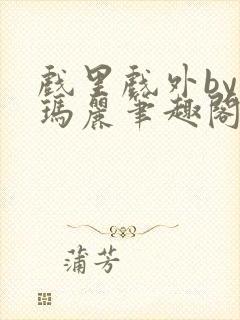 戲里戲外by
瑪麗筆趣閣
蒲芳